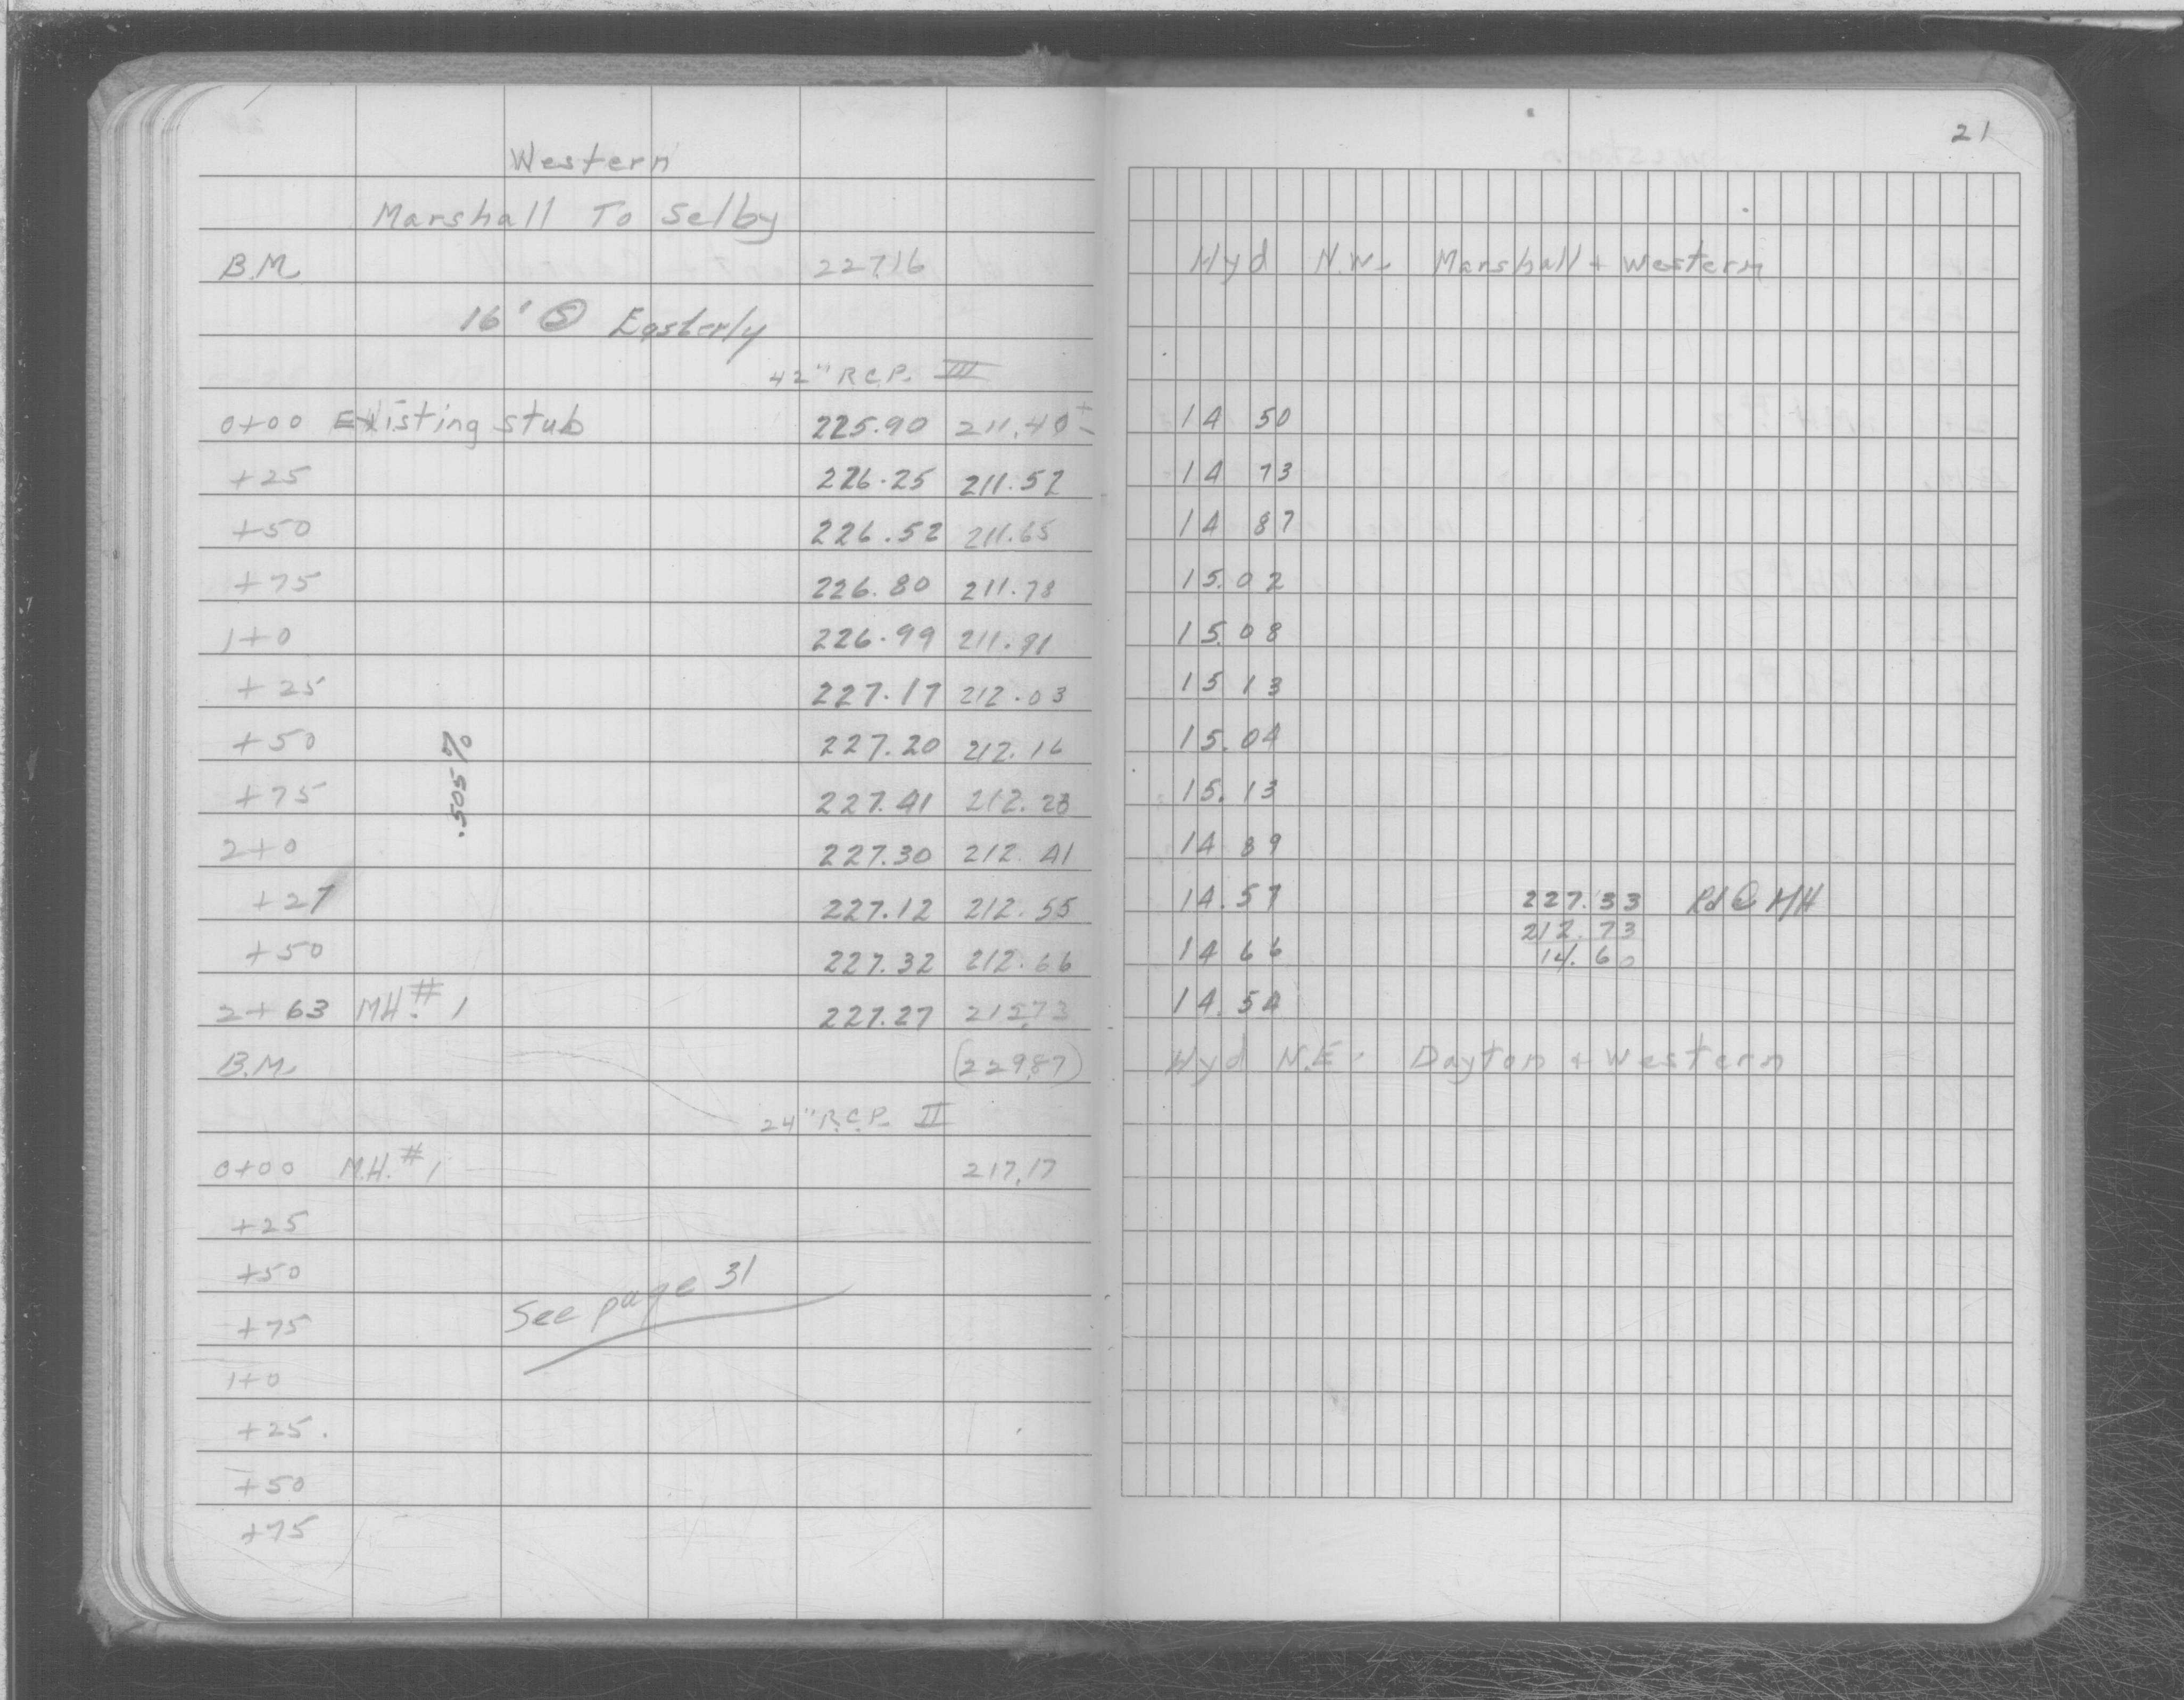 21
Western
Marshall To Selby
B.M. 227.16 Hyd N.W. Marshall + Western
16' Ⓢ Easterly
42" R.C.P. III
0+00 Existing stub 225.90 211.40± 14 50
+25 226.25 211.52 14 73
+50 226.52 211.65 14 87
+75 226.80 211.78 15.02
1+0 226.99 211.91 15.08
+25 227.17 212.03 15 13
+50 227.20 212.16 15.04
+75 227.41 212.28 15.13
2+0 227.30 212.41 14 89
+27 227.12 212.55 14.57 227.33 Rd @ MH
212.73
+50 227.32 212.66 14 66 14.60
2+63 MH.# 1 227.27 212.73 14.54
.505%
B.M. (229.87) Hyd N.E. Dayton + Western
24" R.C.P. II
0+00 M.H.# 1 217.17
+25
+50
See page 31
+75
1+0
+25.
+50
+75